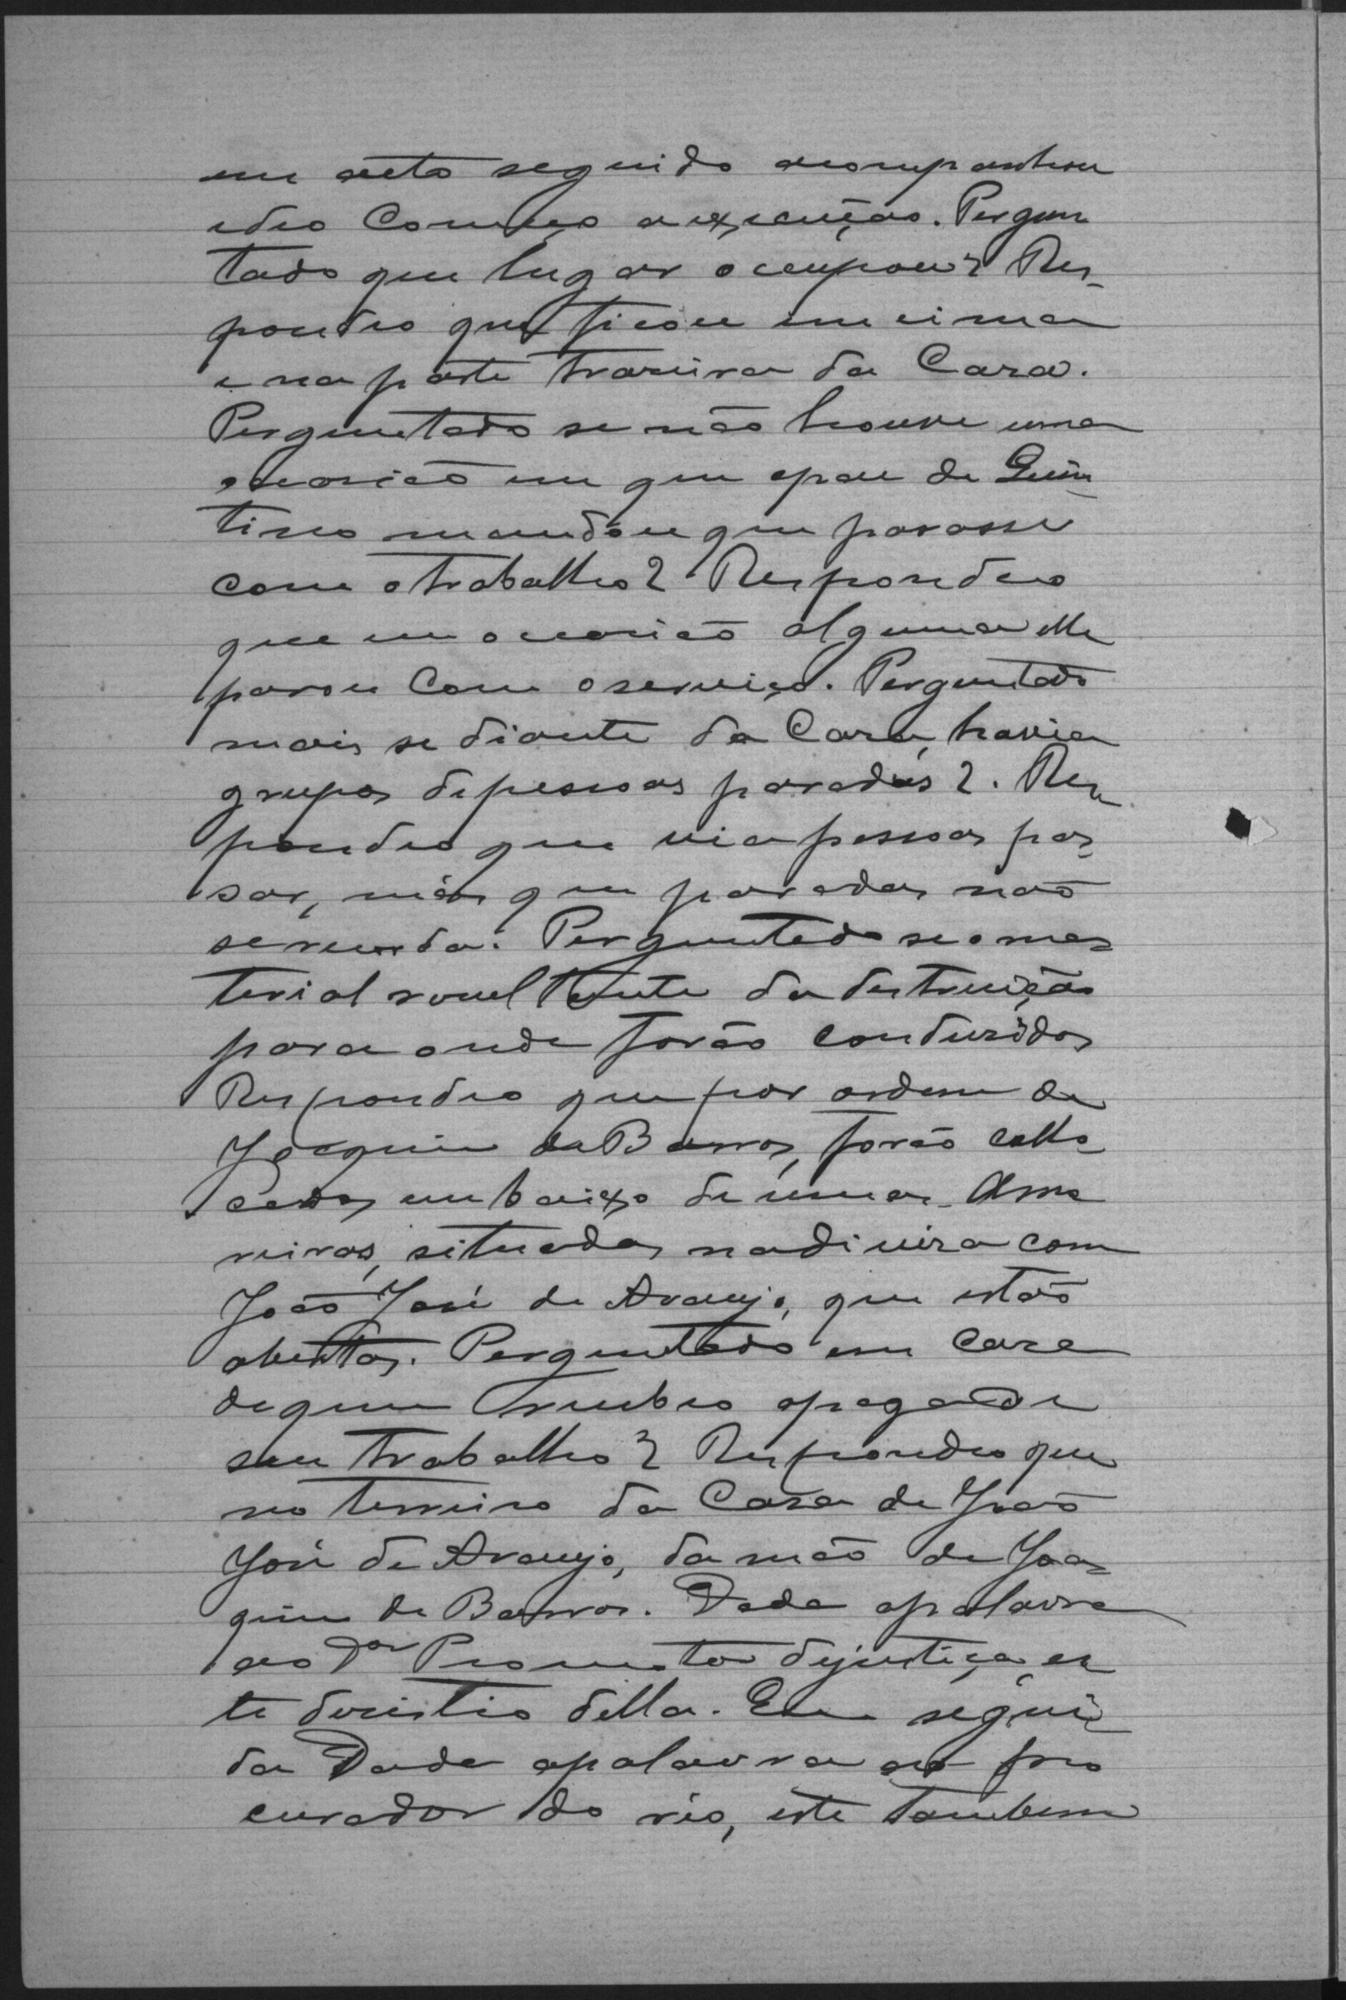 em acto seguido acompanhou
e deo Começo a execução. Pergun
tado que lugar occupou? Res-
pondeo que ficou em cima
e na parte trazeira da Caza.
Perguntado se não houve uma
occasião em que o pae de Quin
tino mandou que parasse
com o trabalho? Respondeo
que em occasião alguma elle
parou Com o serviço. Perguntado
mais se diante da Caza, havia
grupos de pessoas paradas?. Res
pondeo que via pessoas pas
sar, mas que paradas não
se recorda. Perguntado se o ma
terial resultante da destruição
para onde forão conduzidos
Respondeo que por ordem de
Joaquim de Barros, forão collo
cados em baixo de umas Amo
reiras, situadas na divisa com
João José de Araujo, que estão
abertas. Perguntado em caza
de quem recebeo a paga de
seu trabalho? Respondeo que
no terreiro da Caza de João
José de Araujo, da mão de Joa
quim de Barros. Dada a palavra
ao Dor Promotor de justiça es
te desistio della. Em segui
da Dada a palavra ao pro
curador do réo, este tambem